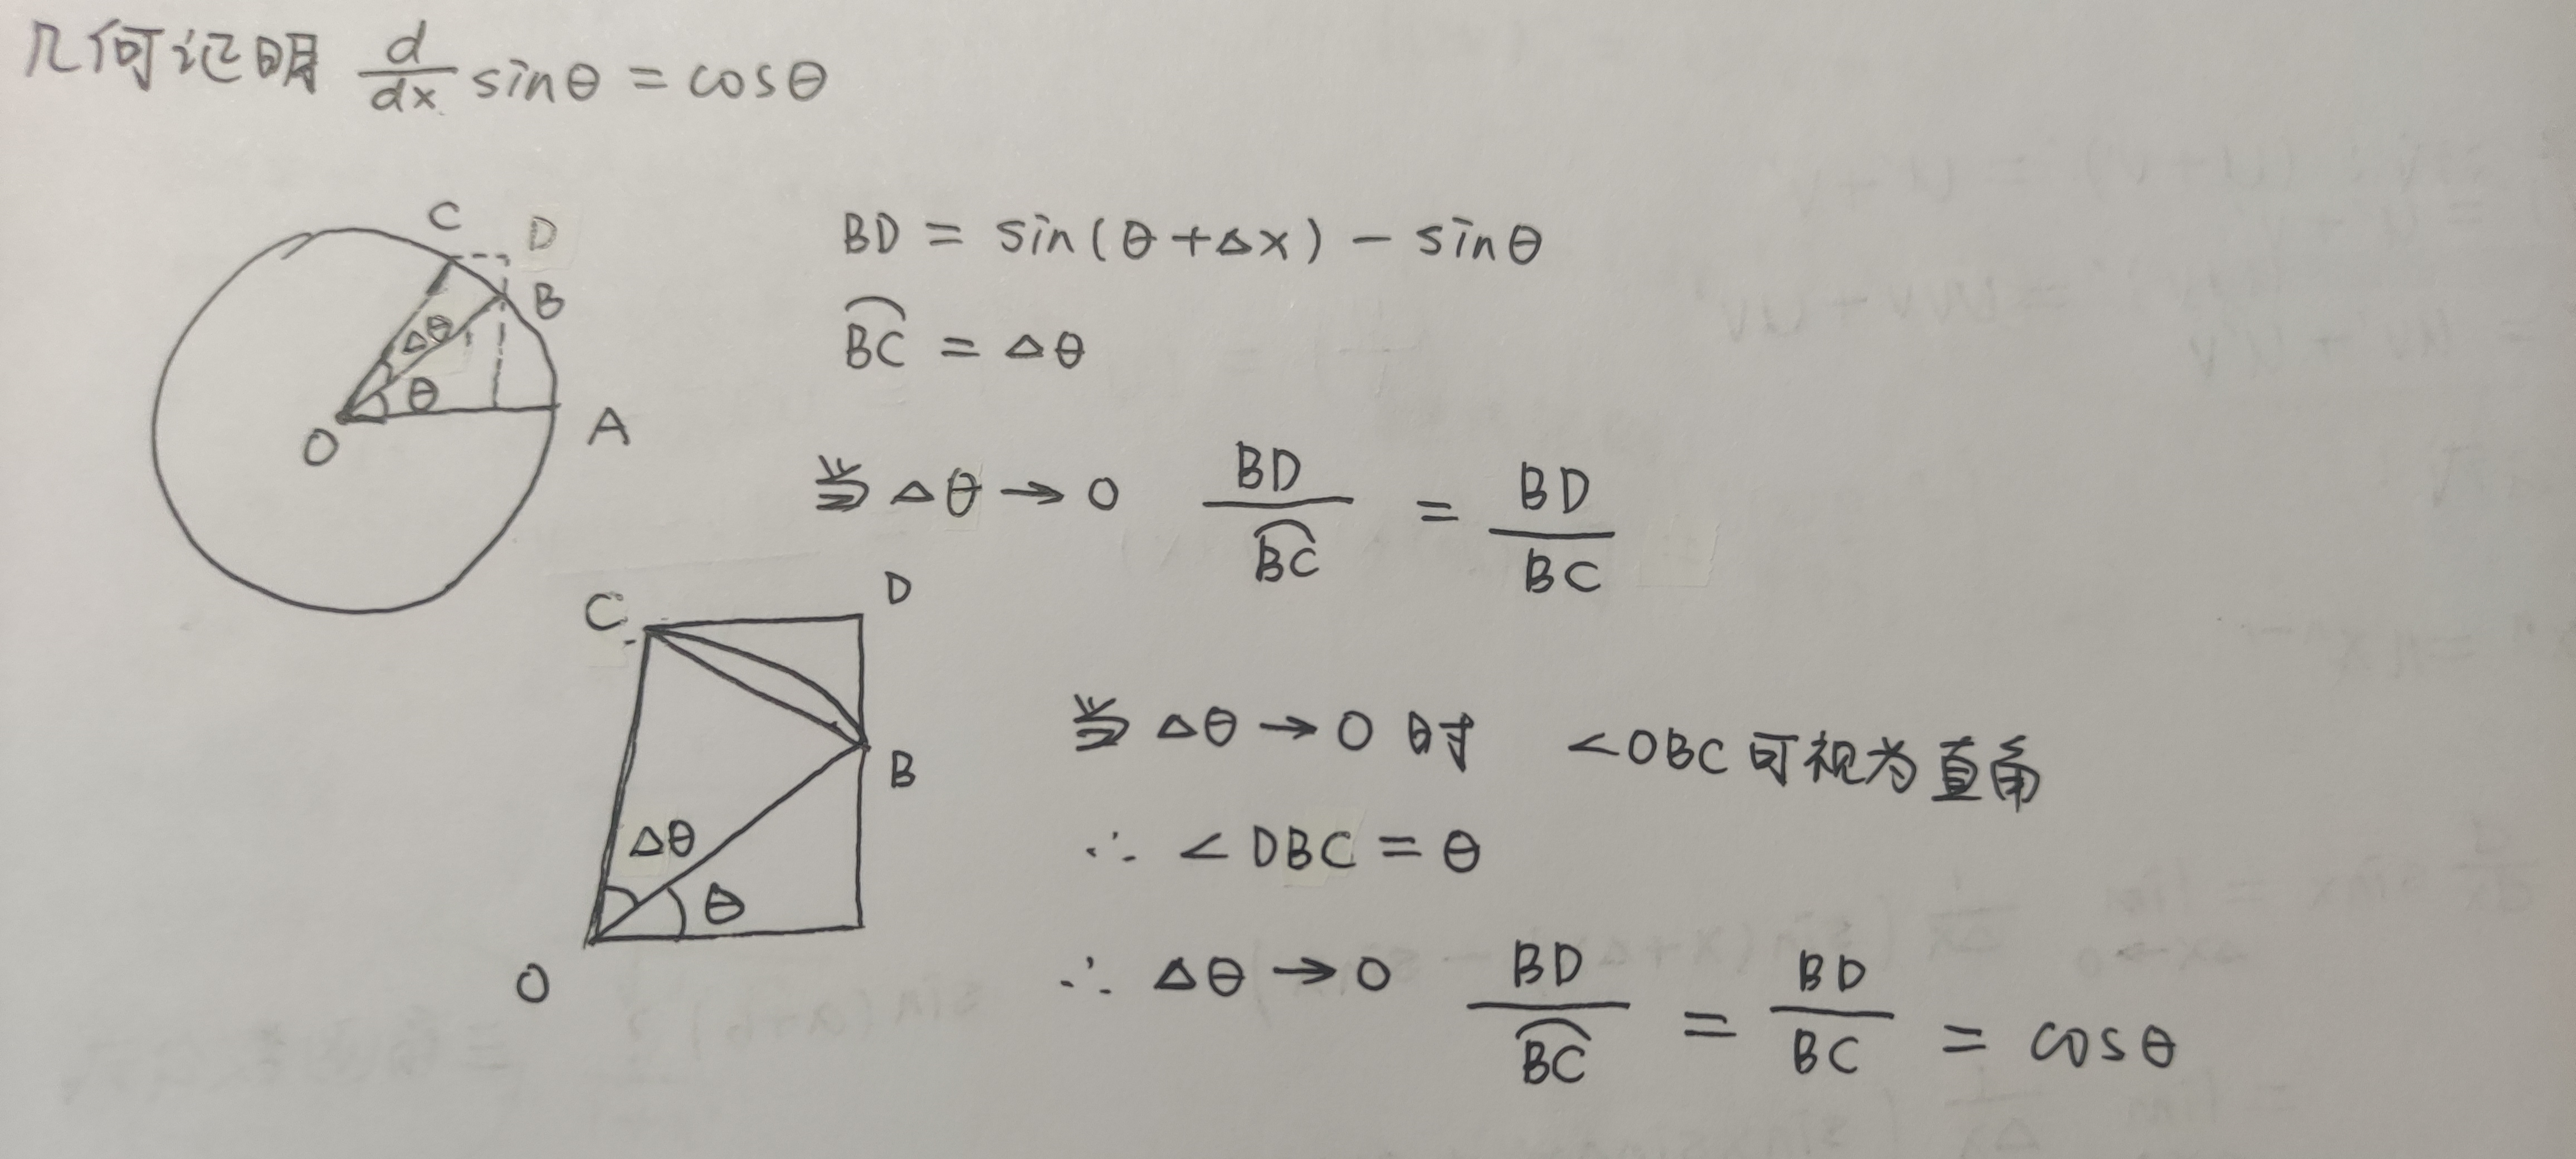 几何证明 d/dx sinθ = cosθ
C
D
B
Δθ
θ
O
A
BD = sin(θ+Δx) - sinθ
⌒BC = Δθ
当 Δθ → 0 BD/⌒BC = BD/BC
C
D
B
Δθ
θ
O
当 Δθ → 0 时 ∠OBC 可视为直角
∴ ∠DBC = θ
∴ Δθ → 0 BD/⌒BC = BD/BC = cosθ